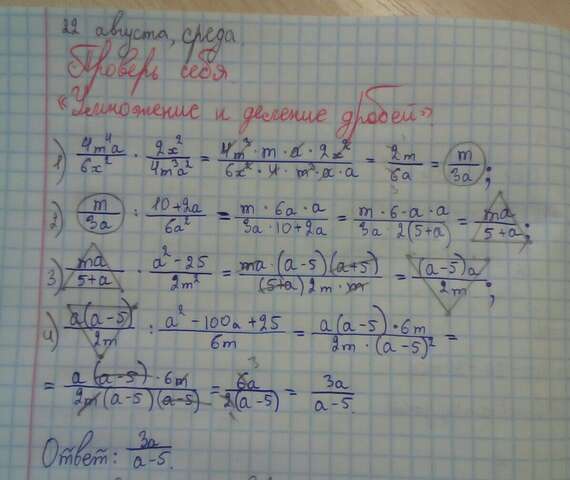 22 августа, среда.
Проверь себя
"Умножение и деление дробей".
1) 4m⁴a/6x² · 2x²/4m³a² = 4m³·m·a·2x²/6x²·4·m³·a·a = 2m/6a = m/3a;
2) m/3a : 10+2a/6a² = m·6a·a/3a·10+2a = m·6·a·a/3a·2(5+a) = ma/5+a;
3) ma/5+a · a²-25/2m² = ma·(a-5)(a+5)/(5+a)2m·m = (a-5)a/2m;
4) a(a-5)/2m : a²-100a+25/6m = a(a-5)·6m/2m·(a-5)² =
= a(a-5)·6m/2m(a-5)(a-5) = 6a/2(a-5) = 3a/a-5.
Ответ: 3a/a-5.